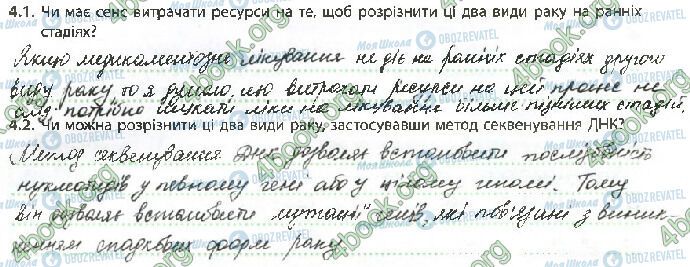 4.1. Чи має сенс витрачати ресурси на те, щоб розрізнити ці два види раку на ранніх
стадіях?
Якщо медикаментозне лікування не діє на ранніх стадіях другого
виду раку то я думаю, що витрачати ресурси на цей процес не
слід потрібно шукати ліки на лікування більш пізніших стадій.
4.2. Чи можна розрізнити ці два види раку, застосувавши метод секвенування ДНК?
Метод секвенування ДНК дозволяє встановити послідовність
нуклеотидів у певному гені або у цілому геномі. Тому
він дозволяє встановити мутації генів, які пов'язані з виник-
ненням спадкових форм раку.